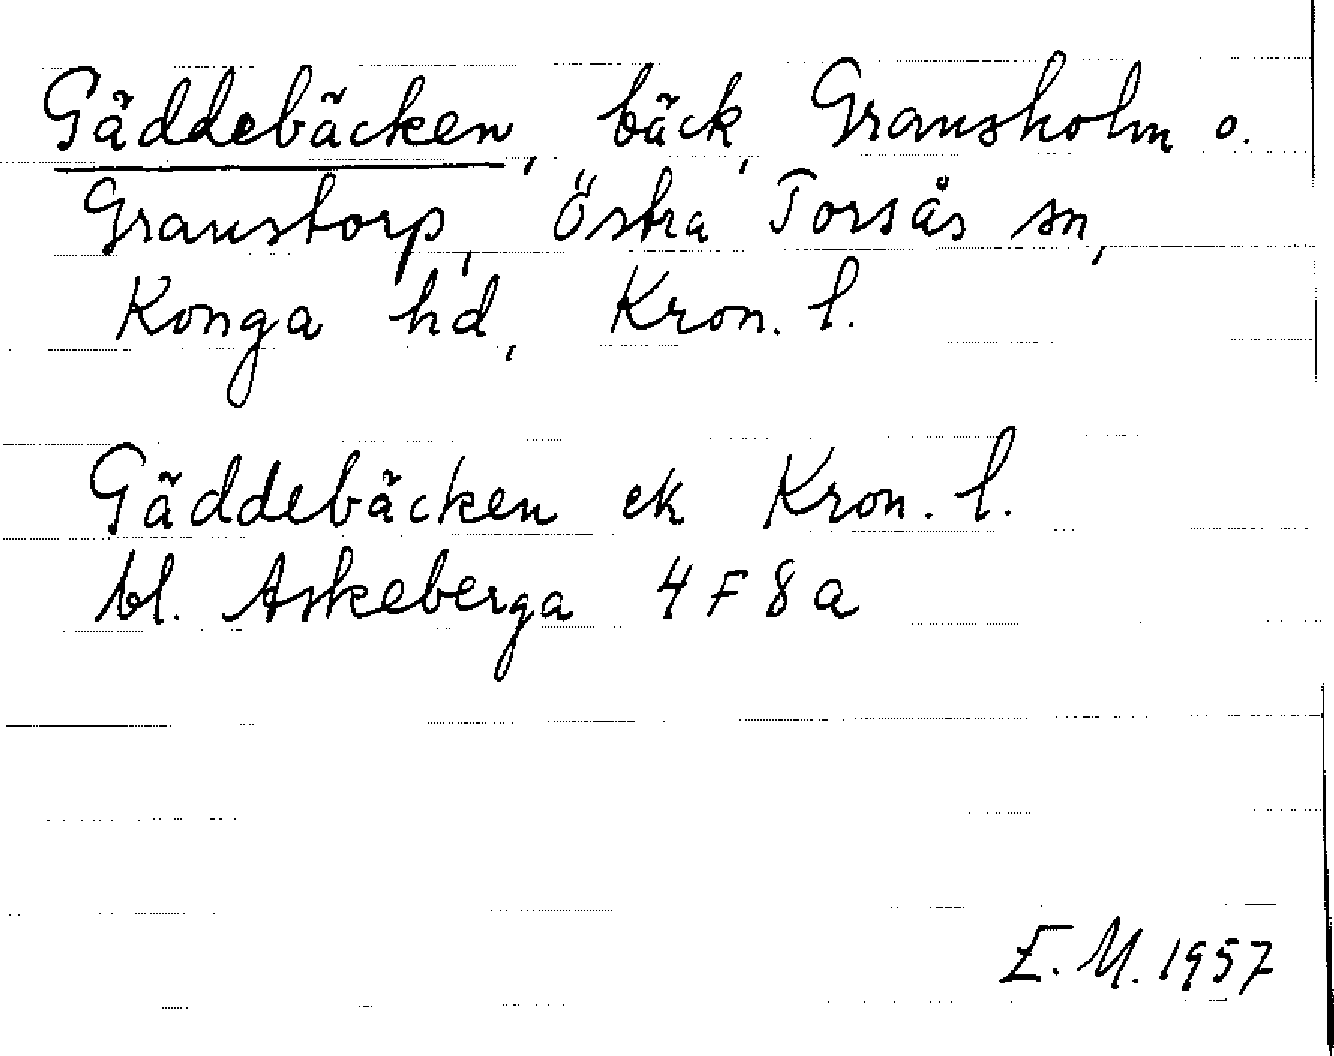 Gäddebäcken, bäck, Gransholm o.
Granstorp, Östra Torsås sn,
Konga hd, Kron. l.
Gäddebäcken ek Kron. l.
bl. Askeberga 4 F 8 a
E. M. 1957